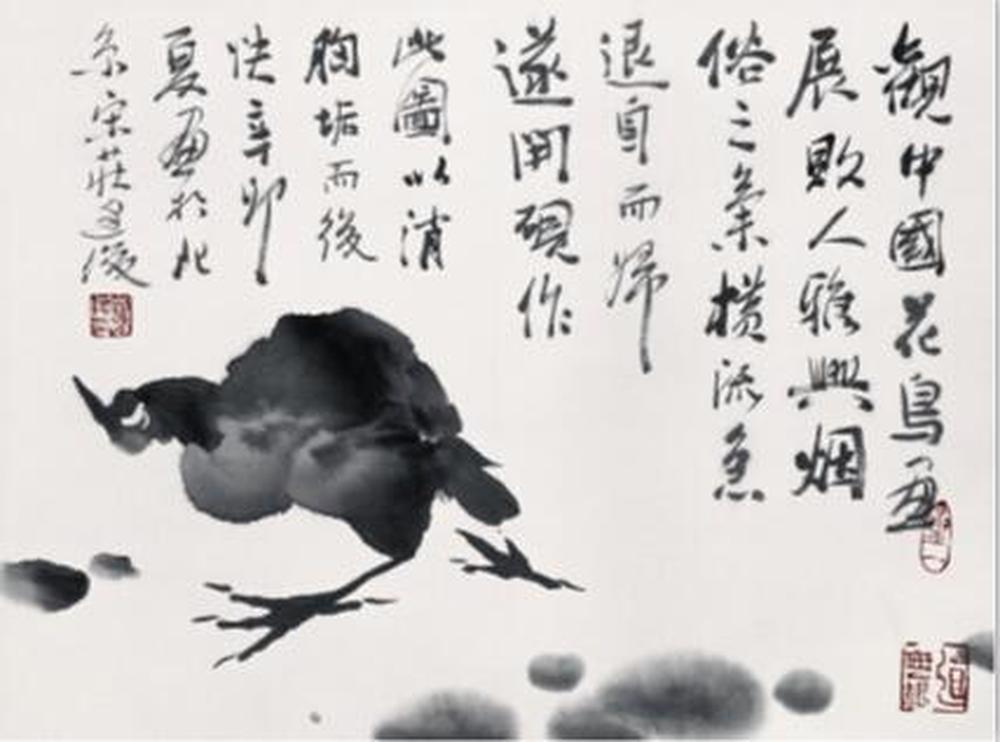 觀中國花鳥畫
展敗人雅興烟
俗之氣橫流急
退自而歸
遂開硯作
此圖以消
胸垢而後
快辛卯
夏畫於北
京宋莊